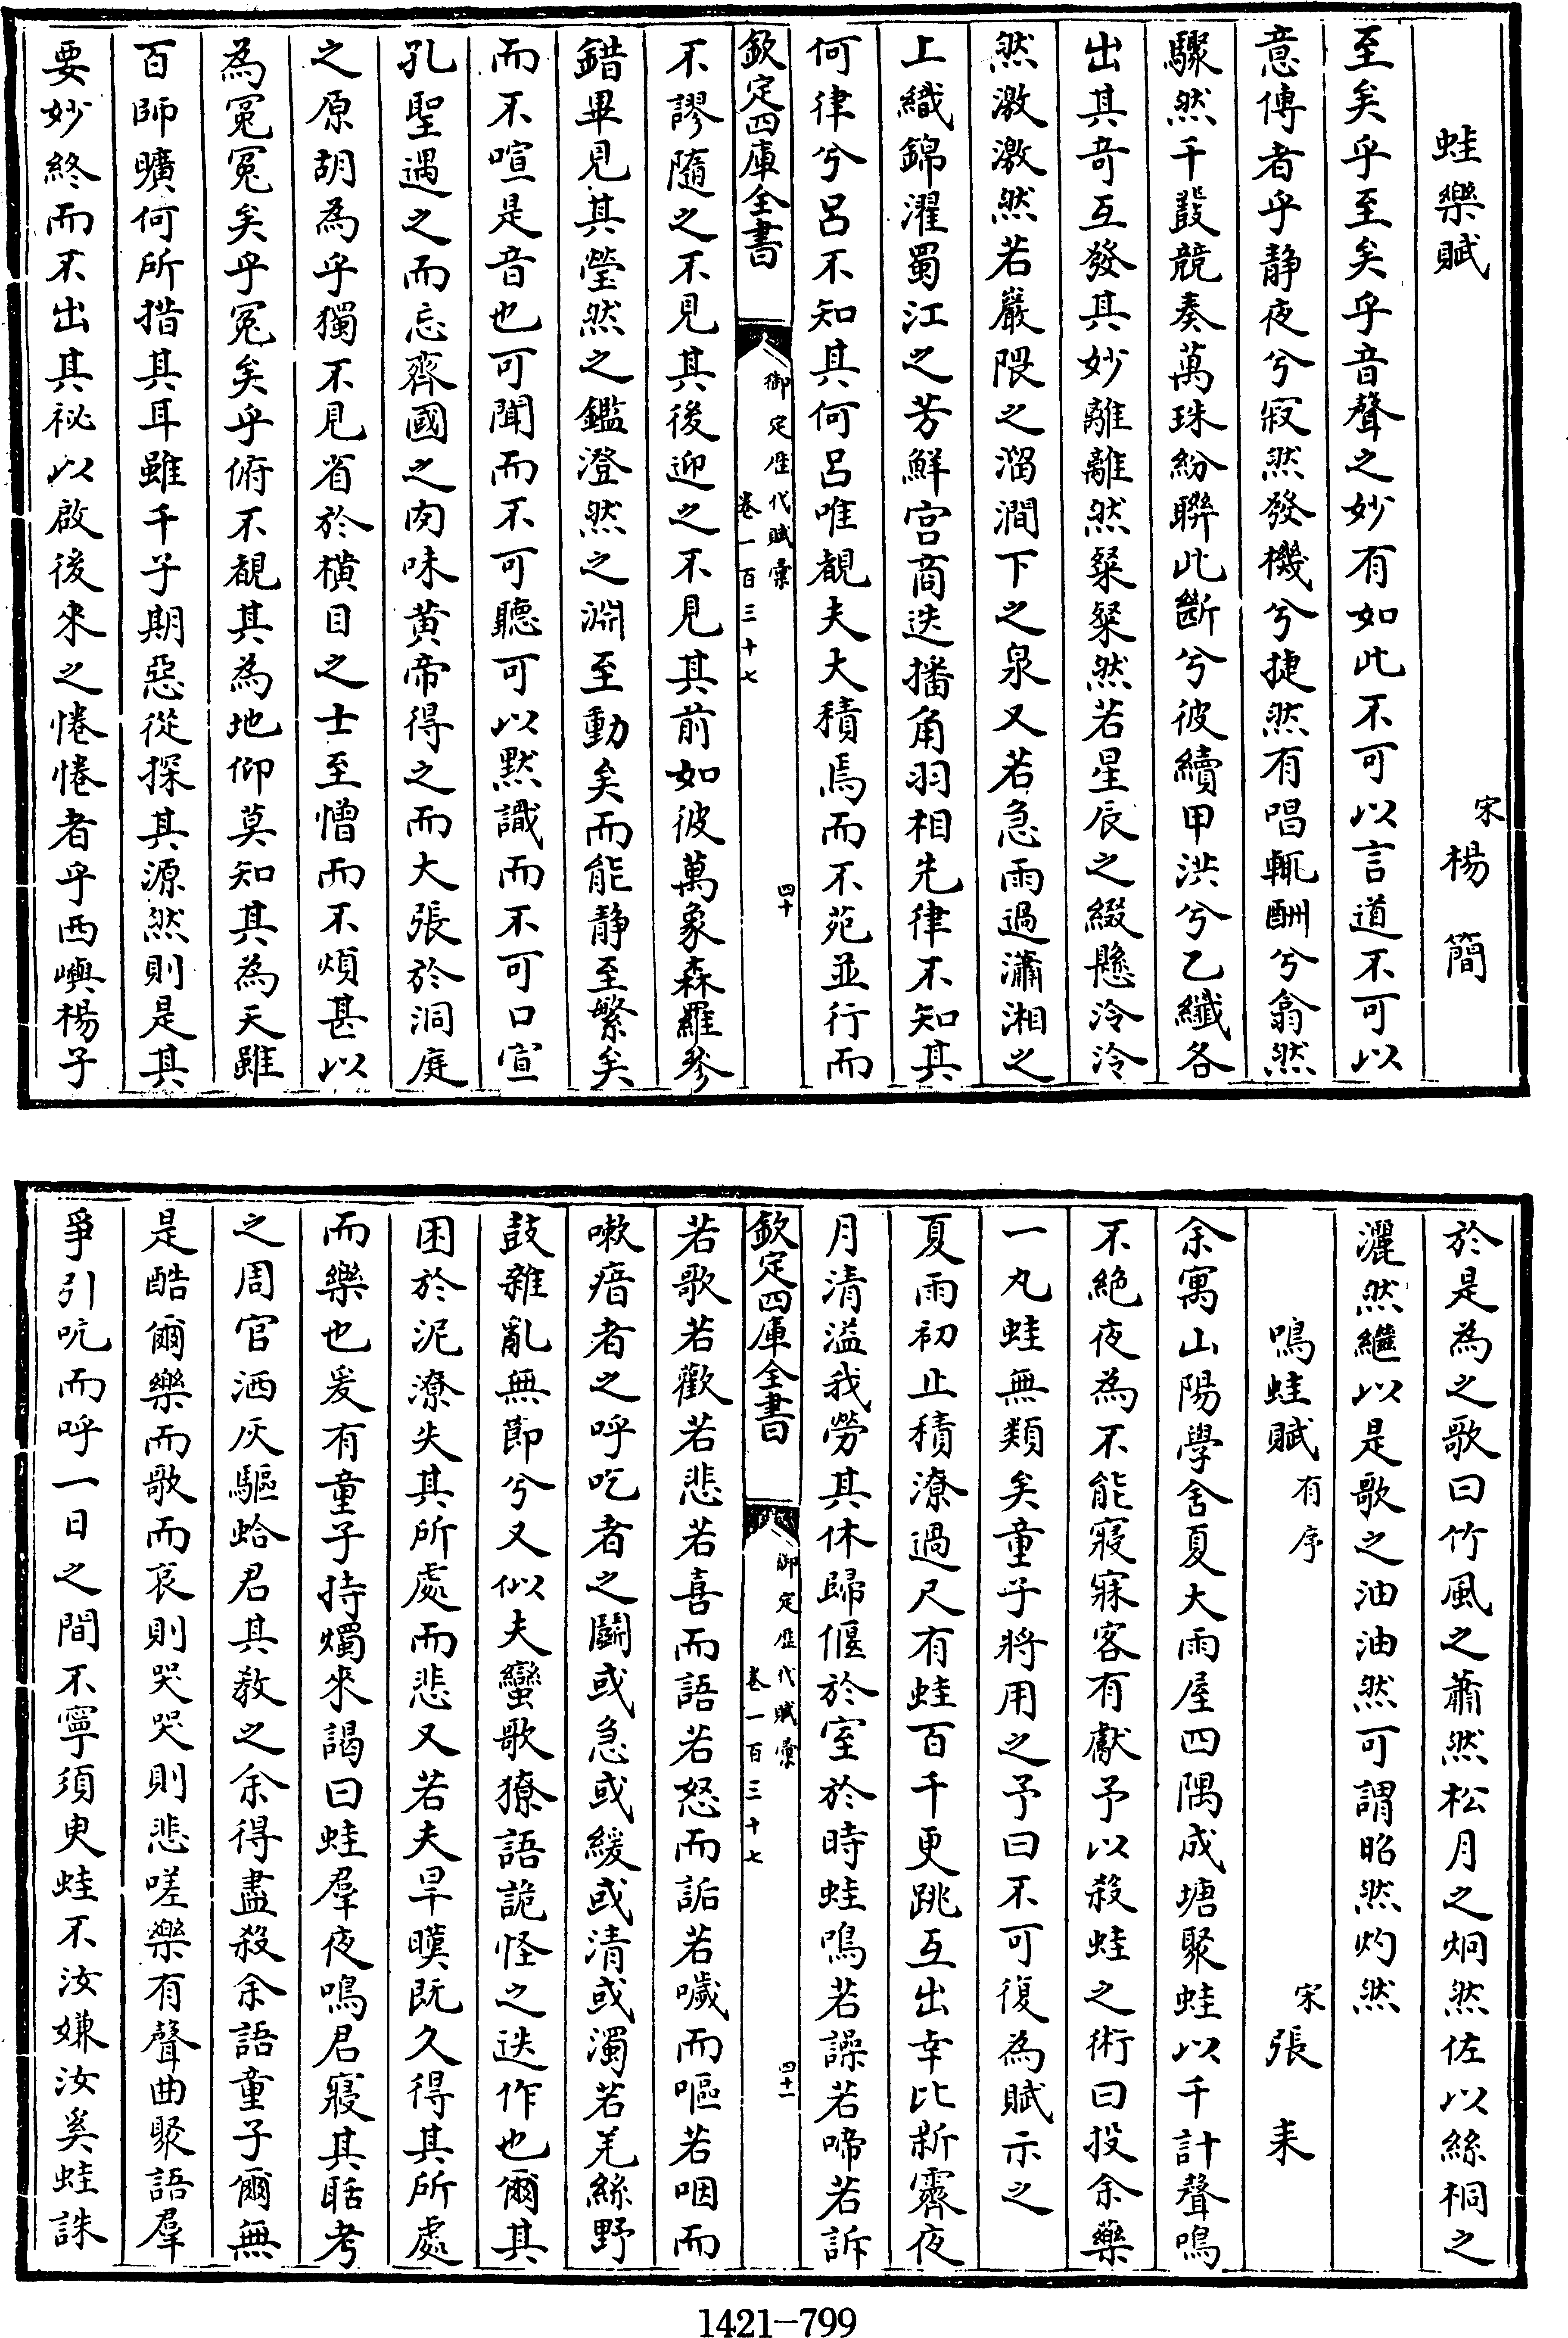 蛙樂賦
宋楊簡
至矣乎至矣乎音聲之妙有如此不可以言道不可以
意傳者乎静夜兮寂然發機兮捷然有唱輒酬兮翕然
驟然千鼓競奏萬珠紛聨此斷兮彼續甲洪兮乙纖各
出其竒互發其妙離離然粲粲然若星辰之綴懸泠泠
然激激然若巖隈之溜澗下之泉又若急雨過瀟湘之
上織錦濯蜀江之芳鮮宫商迭播角羽相先律不知其
何律兮呂不知其何呂唯覩夫大積焉而不苑並行而
欽定四庫全書
御定歴代賦彙
卷一百三十七
四十
不謬隨之不見其後迎之不見其前如彼萬象森羅參
錯畢見其瑩然之鑑澄然之淵至動矣而能静至繁矣
而不喧是音也可聞而不可聽可以黙識而不可口宣
孔聖遇之而忘齊國之肉味黄帝得之而大張於洞庭
之原胡為乎獨不見省於横目之士至憎而不煩甚以
為冤冤矣乎冤矣乎俯不覩其為地仰莫知其為天雖
百師曠何所措其耳雖千子期惡從探其源然則是其
要妙終而不出其祕以啟後來之惓惓者乎西嶼楊子
於是為之歌曰竹風之蕭然松月之炯然佐以絲桐之
灑然繼以是歌之油油然可謂昭然灼然
鳴蛙賦有序
宋張耒
余寓山陽學舍夏大雨屋四隅成塘聚蛙以千計聲鳴
不絶夜為不能寢寐客有獻予以殺蛙之術曰投余藥
一丸蛙無類矣童子將用之予曰不可復為賦示之
夏雨初止積潦過尺有蛙百千更跳互出幸比新霽夜
月清溢我勞其休歸偃於室於時蛙鳴若譟若啼若訴
欽定四庫全書
御定歴代賦彙
卷一百三十七
四十一
若歌若歡若悲若喜而語若怒而詬若噦而嘔若咽而
嗽瘖者之呼吃者之鬭或急或緩或清或濁若羌絲野
鼓雜亂無節兮又似夫蠻歌獠語詭怪之迭作也爾其
困於泥潦失其所處而悲又若夫旱暵既久得其所處
而樂也爰有童子持燭來謁曰蛙羣夜鳴君寢其聒考
之周官洒灰驅蛤君其敎之余得盡殺余語童子爾無
是酷爾樂而歌而哀則哭哭則悲嗟樂有聲曲聚語羣
爭引吭而呼一日之間不寧須臾蛙不汝嫌汝奚蛙誅
1421-799